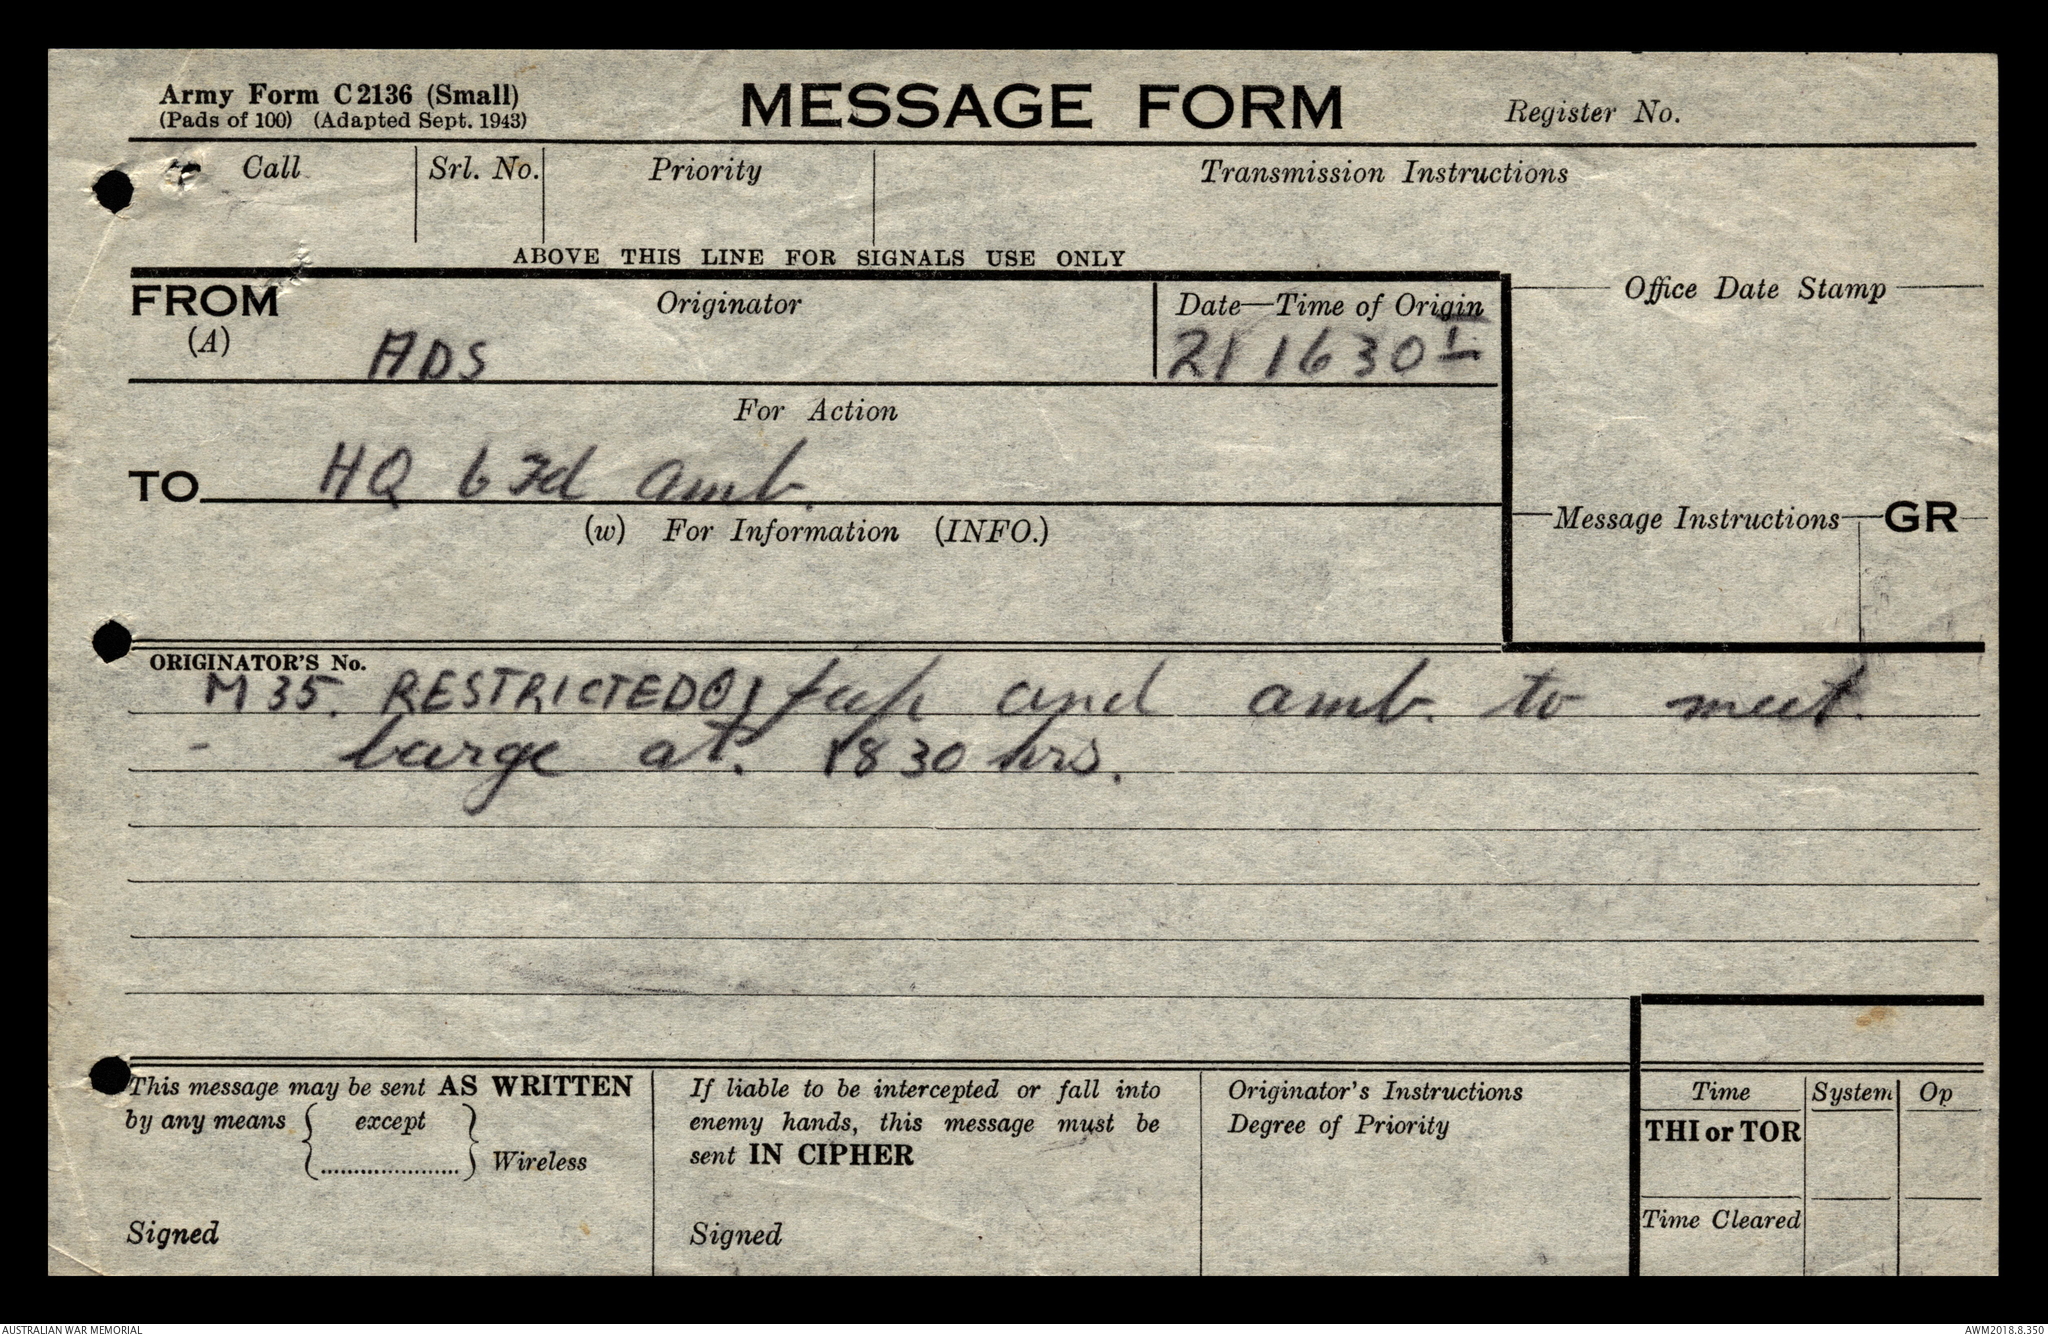 Army Form C2136 (Small)
(Pads of 100) (Adapted Sept. 1943)
MESSAGE FORM
Register No.
Call
Srl. No.
Priority
Transmission Instructions
ABOVE THIS LINE FOR SIGNALS USE ONLY
FROM
(A)
Originator
ADS
Date—Time of Origin
211630 I
Office Date Stamp
For Action
TO HQ 6 Fd Amb.
(w) For Information (INFO.)
Message Instructions GR
ORIGINATOR'S No.
M 35. RESTRICTED and amb. to meet.
barge at. 1830 hrs.
This message may be sent AS WRITTEN
by any means { except
...................... } Wireless
Signed
If liable to be intercepted or fall into
enemy hands, this message must be
sent IN CIPHER
Signed
Originator's Instructions
Degree of Priority
Time System Op
THI or TOR
Time Cleared
AUSTRALIAN WAR MEMORIAL
AWM2018.8.350